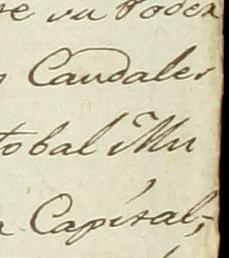 re su Poder
s Caudales
tobal Mu
a Capital,